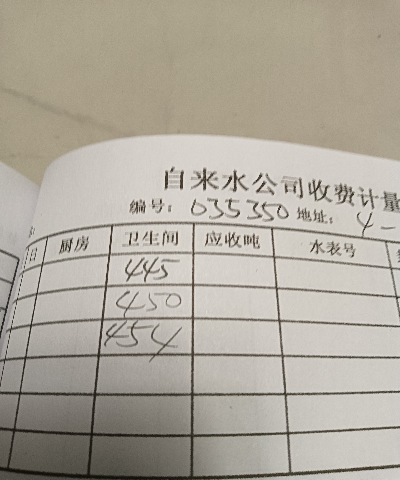 自来水公司收费计量
编号: 035350 地址: 4-
日 厨房 卫生间 应收吨 水表号
445
450
454